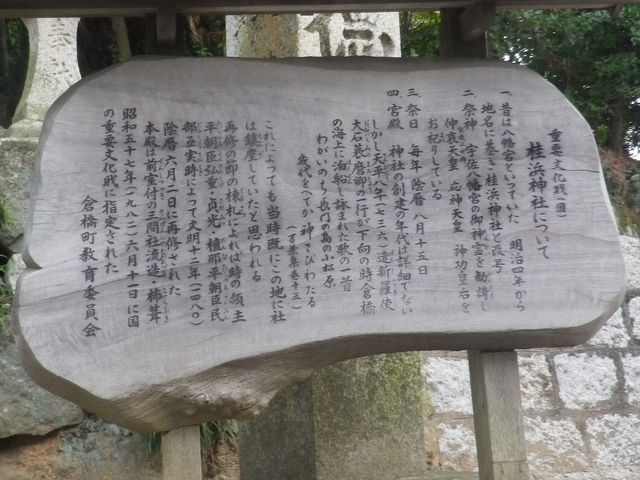 重要文化財(国)
桂浜神社について
一 昔は八幡宮といっていた 明治四年から
地名に基き桂浜神社と改号
二 祭神 宇佐八幡宮の御神霊を勧請し
仲哀天皇 応神天皇 神功皇后を
お祀している
三 祭日 毎年 陰暦 八月十五日
四 宮殿 神社の創建の年代は詳細でない
しかし天平八年(七三六)遣新羅使
大石蓑麿部の一行が下向の時倉橋
の海上に泊船し詠まれた歌の一首
わがいのちを長門の島の小松原
幾代をへてか神さびわたる
(万葉集巻十五)
これによっても当時既にこの地に社
は鎮座していたと思われる
再修の節の棟札によれば時の領主
平朝臣弘重・貞光・檀那平朝臣民
部丞実時によって文明十二年(一四八〇)
陰暦六月二日に再修された
本殿は前室付の三間社流造・杮葺
昭和五十七年(一九八二)六月十一日に国
の重要文化財に指定された
倉橋町教育委員会